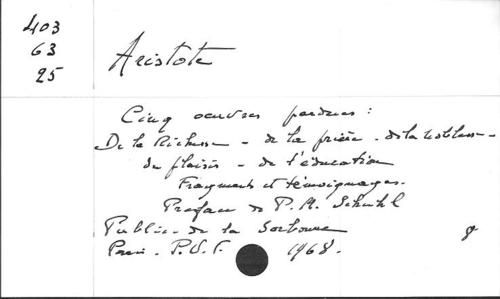 403
63
25
Aristote
Cinq oeuvres perdues :
De la Richesse - de la prière - de la noblesse -
du plaisir - de l'éducation
Fragments et témoignages.
Préface de P. M. Schuhl
Public. de la Sorbonne
Paris. P.U.F. 1968.
8